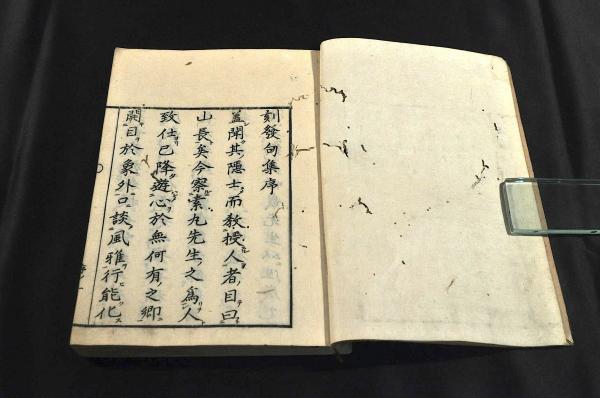 刻發句集序
蓋聞其隱士而敎授人者目曰
山長矣今察素丸先生之爲人
致仕已降遊心於無何有之鄕
開目於象外口談風雅行能化